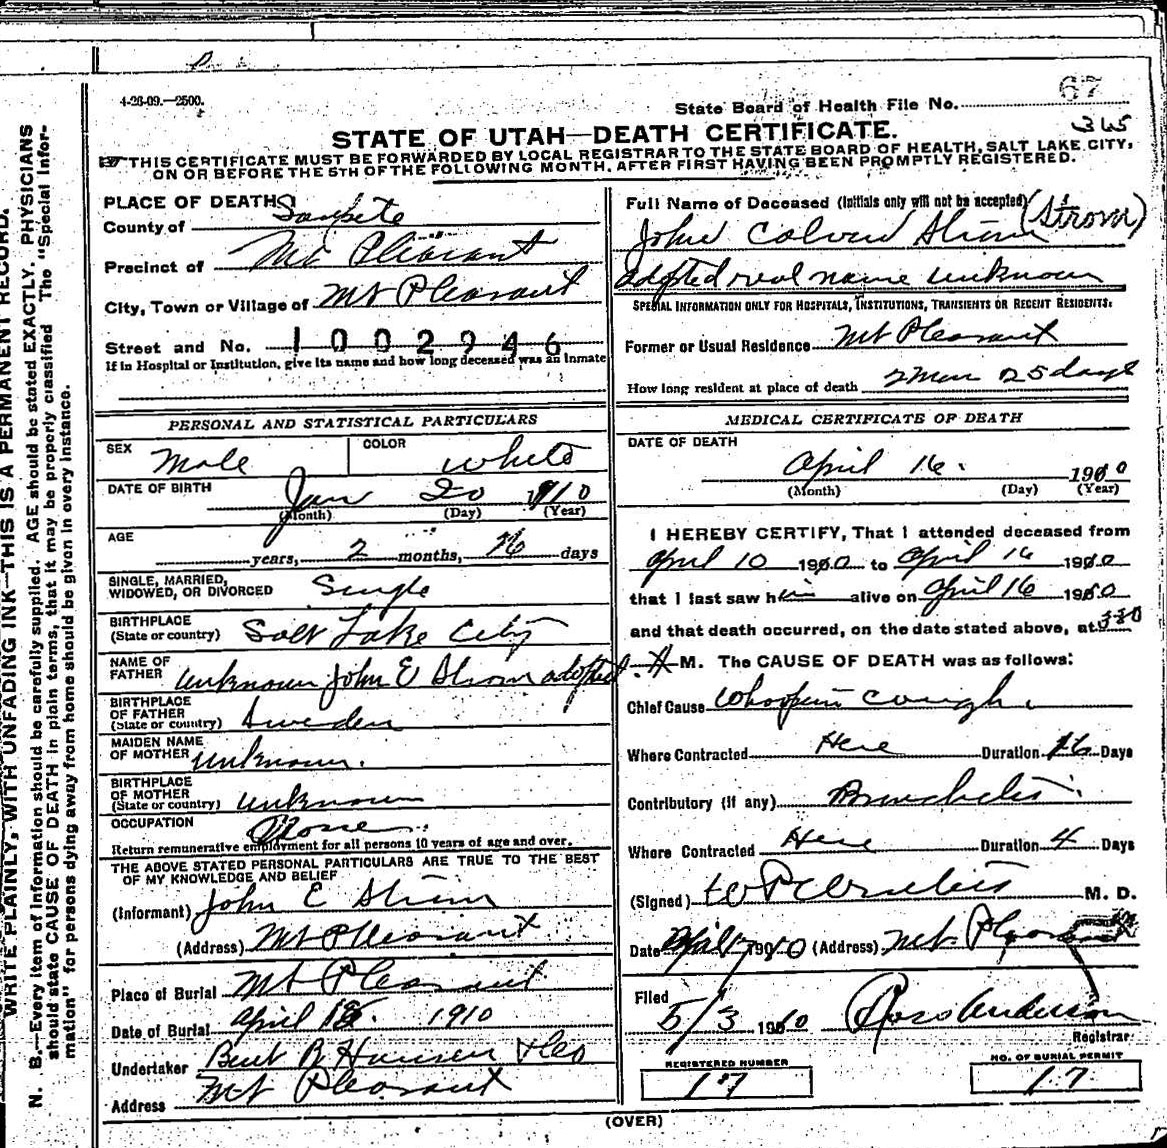 4-26-09.—2500.
State Board of Health File No. 67
365
STATE OF UTAH—DEATH CERTIFICATE.
THIS CERTIFICATE MUST BE FORWARDED BY LOCAL REGISTRAR TO THE STATE BOARD OF HEALTH, SALT LAKE CITY,
ON OR BEFORE THE 5TH OF THE FOLLOWING MONTH, AFTER FIRST HAVING BEEN PROMPTLY REGISTERED.
WRITE PLAINLY, WITH UNFADING INK—THIS IS A PERMANENT RECORD.
N. B.—Every item of information should be carefully supplied. AGE should be stated EXACTLY. PHYSICIANS
should state CAUSE OF DEATH in plain terms, that it may be properly classified. The "Special Infor-
mation" for persons dying away from home should be given in every instance.
PLACE OF DEATH
County of Sanpete
Precinct of Mt Pleasant
City, Town or Village of Mt Pleasant
Street and No. 1002946
If in Hospital or Institution, give its name and how long deceased was an inmate
PERSONAL AND STATISTICAL PARTICULARS
SEX Male COLOR White
DATE OF BIRTH Jan 20 1910
(Month) (Day) (Year)
AGE years, 2 months, 26 days
SINGLE, MARRIED,
WIDOWED, OR DIVORCED Single
BIRTHPLACE
(State or country) Salt Lake City
NAME OF
FATHER unknown John E Strom adopted
BIRTHPLACE
OF FATHER
(State or country) Sweden
MAIDEN NAME
OF MOTHER unknown.
BIRTHPLACE
OF MOTHER
(State or country) unknown
OCCUPATION None
Return remunerative employment for all persons 10 years of age and over.
THE ABOVE STATED PERSONAL PARTICULARS ARE TRUE TO THE BEST
OF MY KNOWLEDGE AND BELIEF
(Informant) John E Strom
(Address) Mt Pleasant
Place of Burial Mt Pleasant
Date of Burial April 18. 1910
Undertaker Bent R Hansen & Co
Address Mt Pleasant
Full Name of Deceased (Initials only will not be accepted) (Strom)
John Calvin Strom
adopted real name unknown
SPECIAL INFORMATION ONLY FOR HOSPITALS, INSTITUTIONS, TRANSIENTS OR RECENT RESIDENTS:
Former or Usual Residence Mt Pleasant
How long resident at place of death 2 mon 25 days
MEDICAL CERTIFICATE OF DEATH
DATE OF DEATH
April 16. 1910
(Month) (Day) (Year)
I HEREBY CERTIFY, That I attended deceased from
April 10 1910 to April 16 1910
that I last saw him alive on April 16 1910
and that death occurred, on the date stated above, at 330
M. The CAUSE OF DEATH was as follows:
Chief Cause Whoopin cough
Where Contracted Here Duration 16 Days
Contributory (if any) Bronchitis
Where Contracted Here Duration 4 Days
(Signed) M. D.
Date April 17 1910 (Address) Mt Pleasant
Filed 5/3 1910 Anderson
Registrar
REGISTERED NUMBER
17
NO. OF BURIAL PERMIT
17
(OVER)